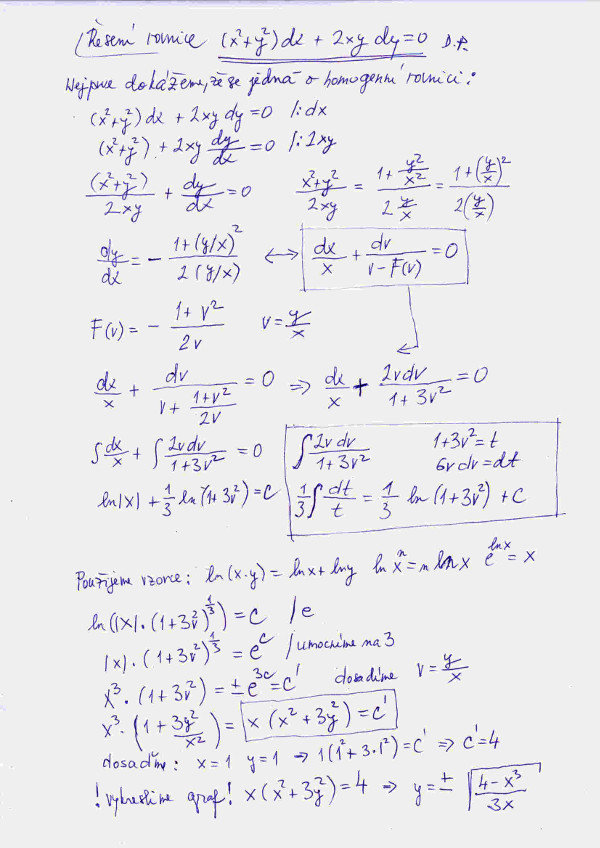 Řešení rovnice (x²+y²)dx + 2xy dy = 0 D.P.
Nejprve dokážeme, že se jedná o homogenní rovnici:
(x²+y²)dx + 2xy dy = 0 /:dx
(x²+y²) + 2xy dy/dx = 0 /:2xy
(x²+y²)/2xy + dy/dx = 0 (x²+y²)/2xy = (1+y²/x²)/(2 y/x) = (1+(y/x)²)/(2(y/x))
dy/dx = - (1+(y/x)²)/(2(y/x)) ↔ dx/x + dv/(v-F(v)) = 0
F(v) = - (1+v²)/2v v = y/x
dx/x + dv/(v + (1+v²)/2v) = 0 ⇒ dx/x + 2vdv/(1+3v²) = 0
∫dx/x + ∫2vdv/(1+3v²) = 0
ln|x| + 1/3 ln(1+3v²) = c
∫2vdv/(1+3v²) 1+3v² = t
6vdv = dt
1/3 ∫dt/t = 1/3 ln(1+3v²) + c
Použijeme vzorce: ln(x·y) = lnx + lny ln xⁿ = n ln x e^(lnx) = x
ln(|x|·(1+3v²)^(1/3)) = c /e
|x|·(1+3v²)^(1/3) = e^c /umocníme na 3
x³·(1+3v²) = ±e^(3c) = c' dosadíme v = y/x
x³·(1+3y²/x²) = x(x²+3y²) = c'
dosaďme: x=1 y=1 → 1(1²+3·1²) = c' ⇒ c'=4
! vykreslíme graf! x(x²+3y²) = 4 ⇒ y = ± √((4-x³)/3x)